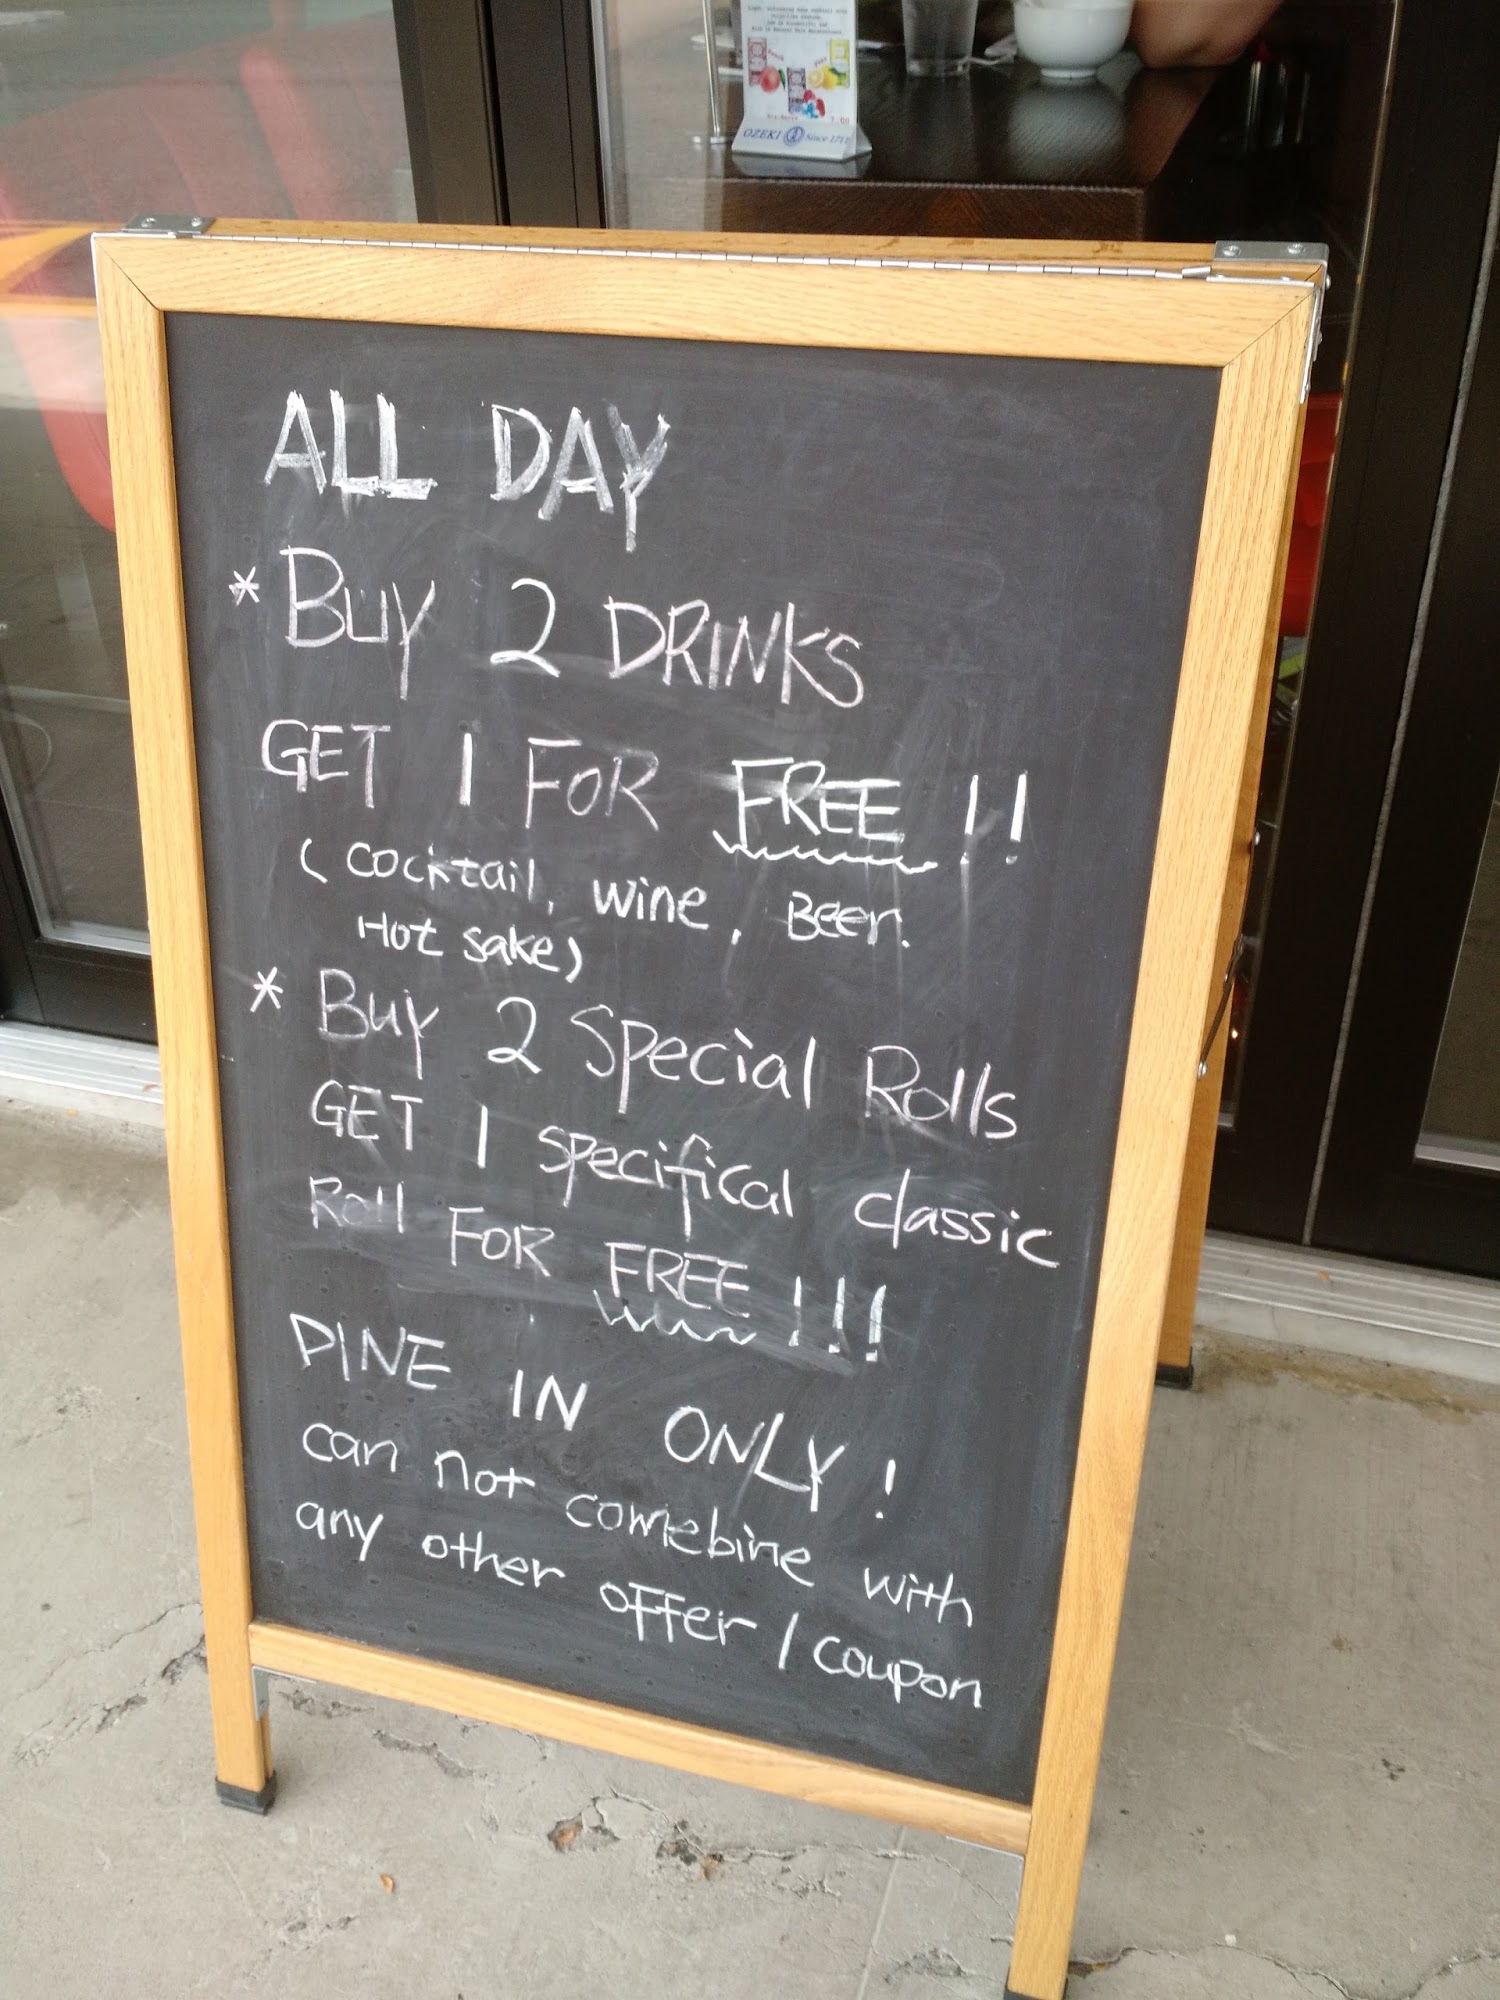 OZEKI Since 1711
ALL DAY
* Buy 2 DRINKS
GET 1 FOR FREE !!
( cocktail, wine, Beer.
Hot sake)
* Buy 2 Special Rolls
GET 1 specifical classic
Roll FOR FREE !!!
DINE IN ONLY !
can not comebine with
any other offer / coupon